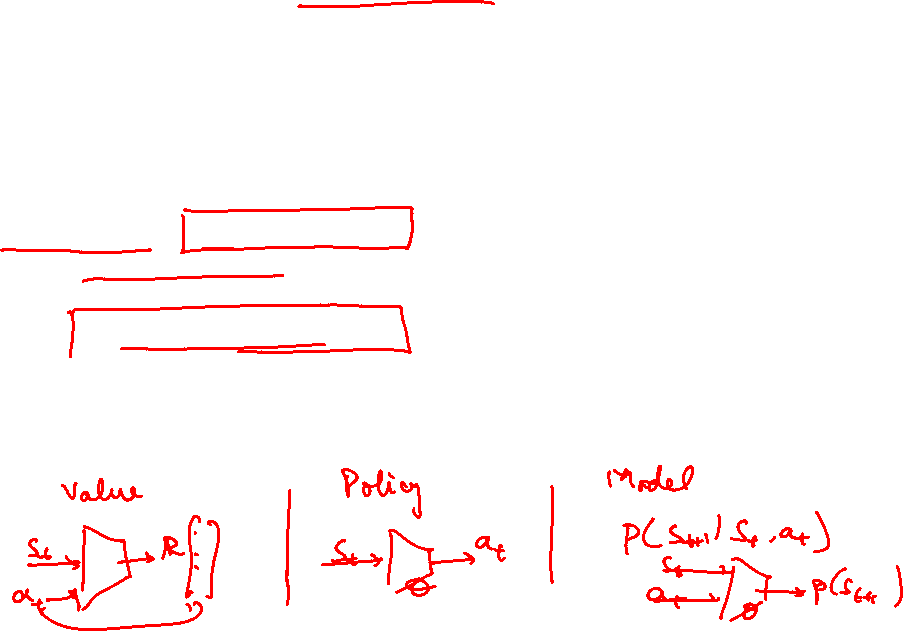 Value
s_t
a_t
R
Policy
s_t
a_t
θ
Model
P(s_{t+1} | s_t, a_t)
s_t
a_t
θ
P(s_{t+1})